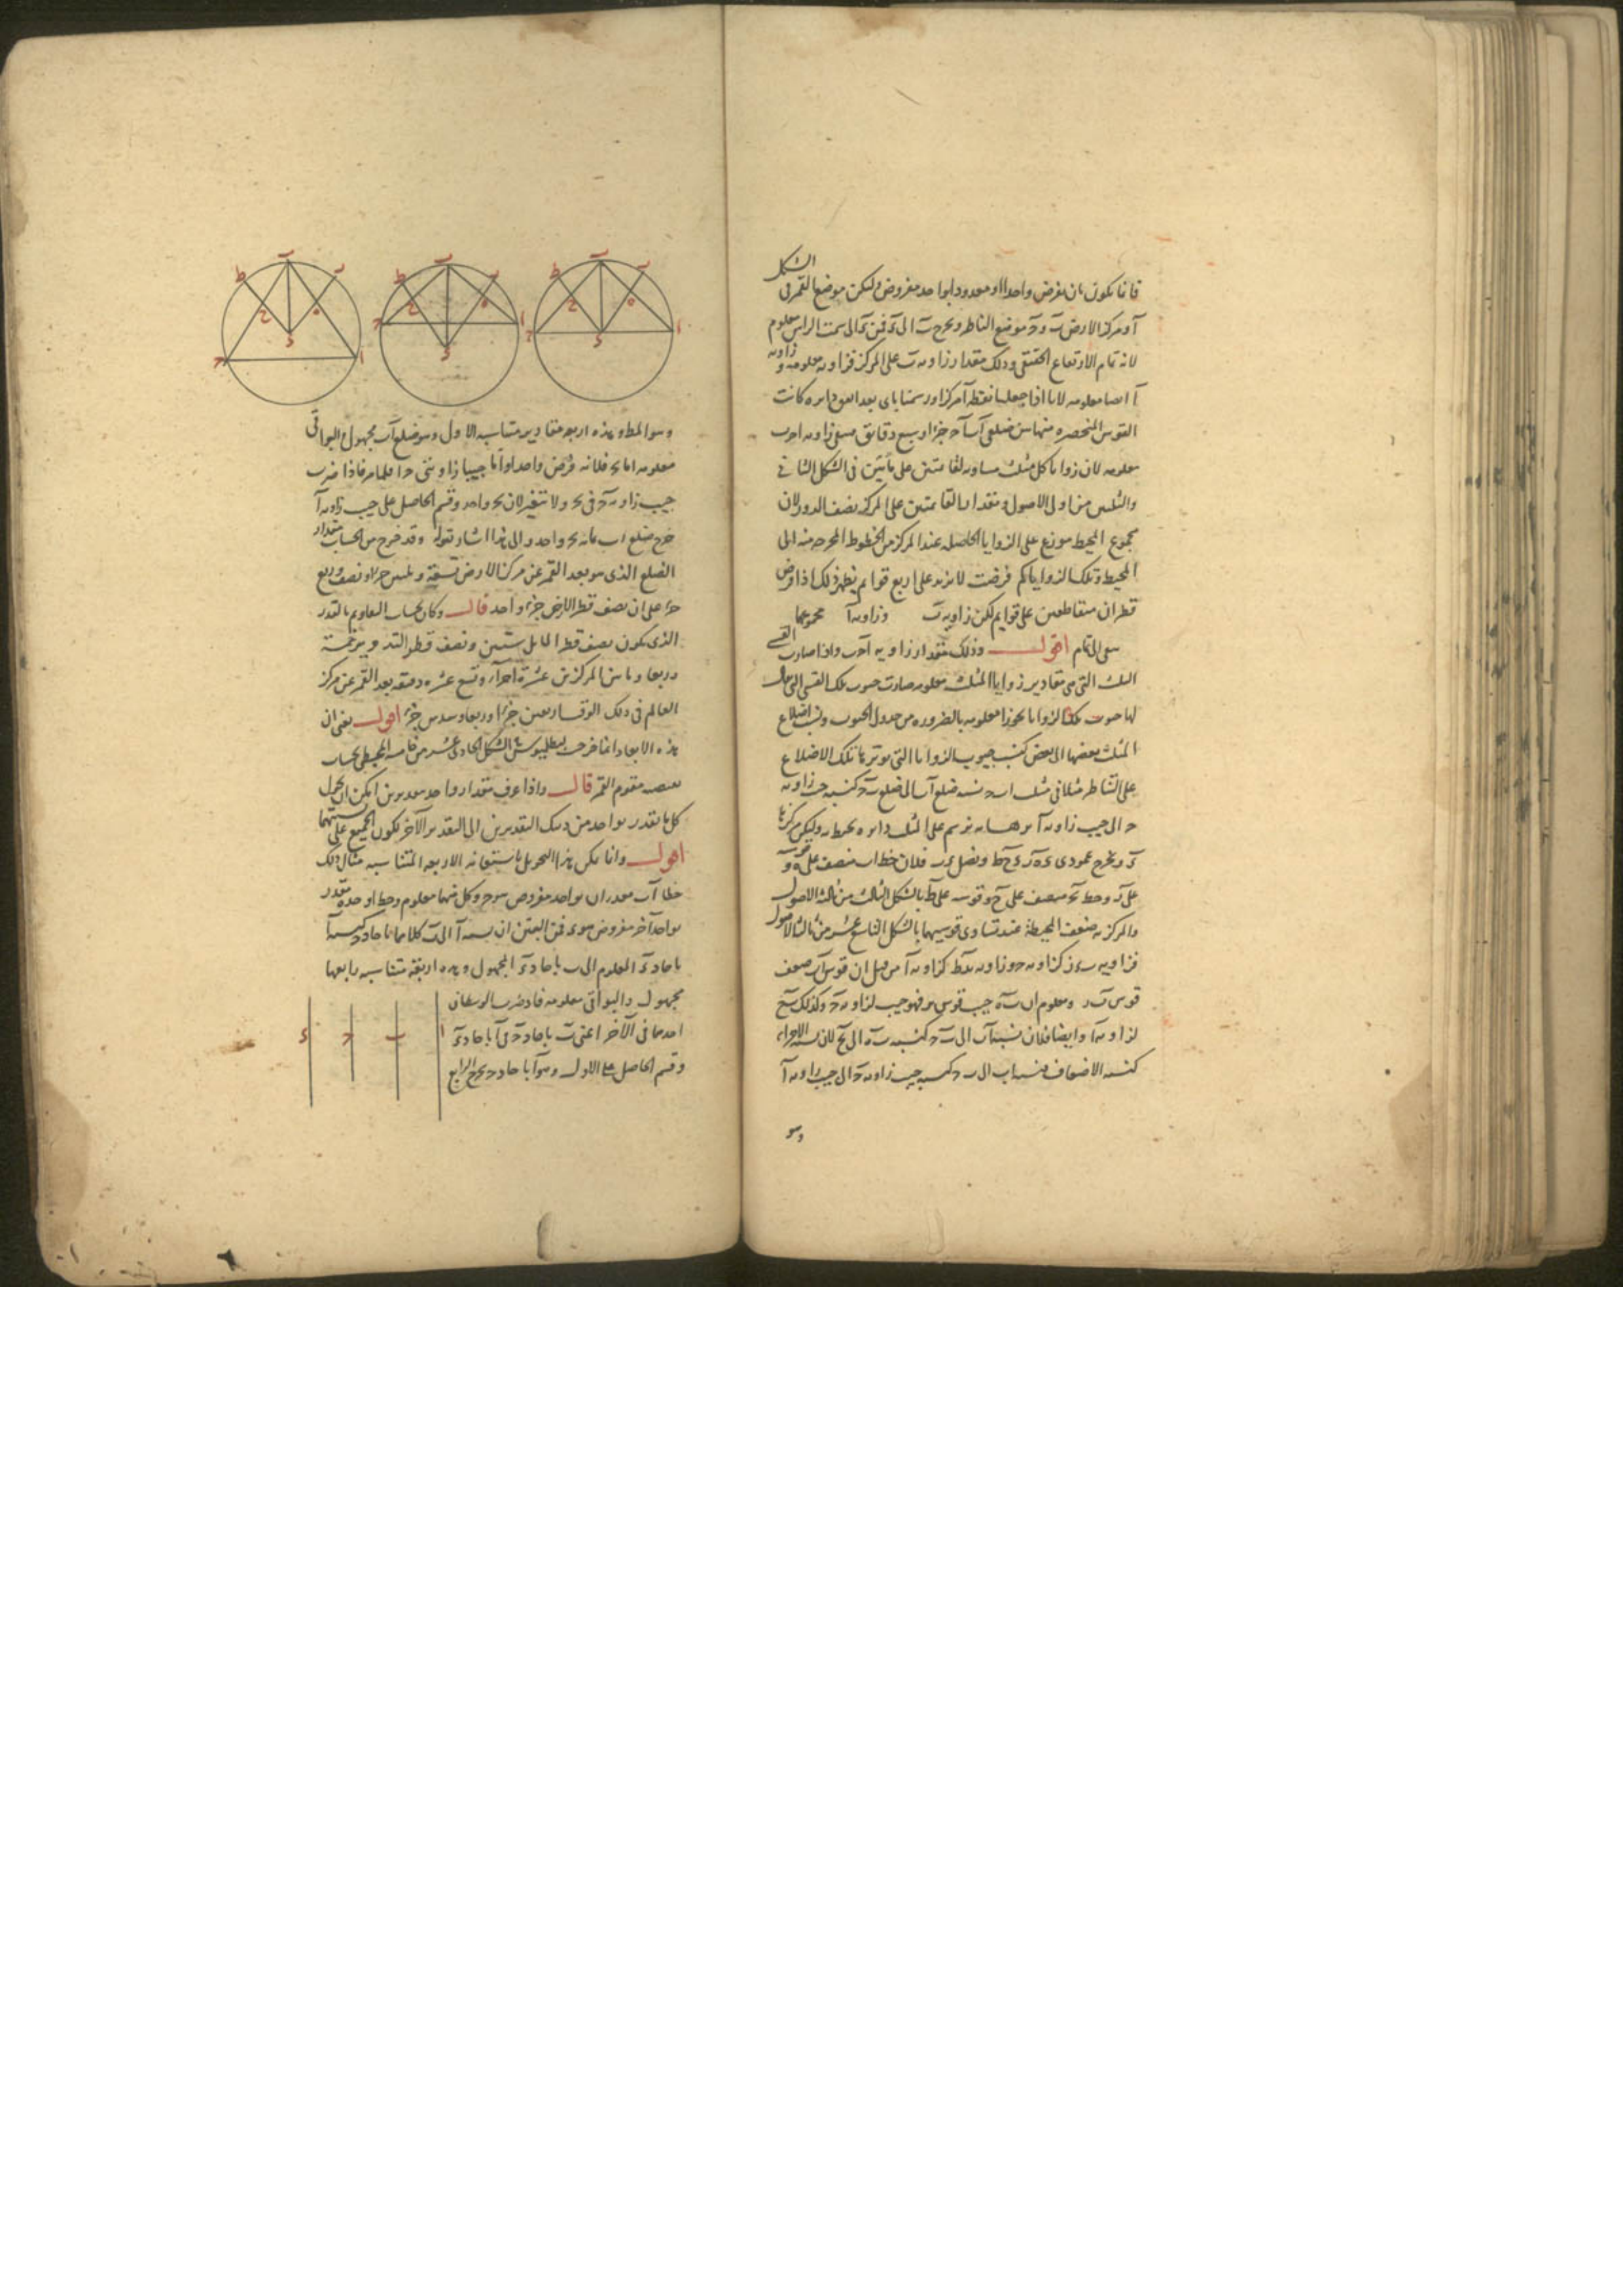 الشكل
فانما يكون بان نفرض واحدا او معدودا بواحد مفروض وليكن موضع القمر في
آ ومركز الارض ب و ح موضع الناظر ونخرج ب الى سمت الراس معلوم
لانه تمام الارتفاع الحقيقي وذلك مقدار زاوية ب على المركز فزاوية معلومة وزاوية
آ ايضا معلومة لانا اذا جعلنا نقطة آ مركزا ورسمنا باى بعد اتفق دايره كانت
القوس المنحصره منها بين ضلعى آب آح جزءا وسبع دقايق فبقى زاوية احب
معلومه لان زوايا كل مثلث مساويه لقائمتين على ما تبين في الشكل الثاني
والثلثين من اولى الاصول ومقدار القائمتين على المركز نصف الدور لان
مجموع المحيط موزع على الزوايا الحاصله عند المركز من الخطوط المخرجه منه الى
المحيط وتلك الزوايا كم فرضت لا تزيد على اربع قوايم يظهر ذلك اذا فرض
قطران متقاطعين على قوايم لكن زاوية ب وزاوية آ مجموعهما
بقى الى تمام اقول وذلك مقدار زاوية آحب واذا صارت القسى
الثلث التي هي مقادير زوايا المثلث معلومه صارت جيوب تلك القسى التي يقال
لها جيوب تلك الزوايا تجوزا معلومه بالضروره من جدول الجيوب ونسب اضلاع
المثلث بعضها الى بعض كنسب جيوب الزوايا التي توترها تلك الاضلاع
على التناظر مثلا في مثلث ا ب ح نسبة ضلع آب الى ضلع ب ح كنسبة جيب زاوية
ح الى جيب زاوية آ برهانه نرسم على المثلث دايره محيطه وليكن مركزها
ء ونخرج عمودى ء ه ر ء ح ط ونصل ء ب فلان خط ا ب منصف على ه وقوسه
على ر وخط ب ح منصف على ح وقوسه على ط بالشكل الثالث من ثالثة الاصول
والمركزيه ضعف المحيطية عند تساوى قوسيهما بالشكل التاسع عشر من ثالثة الاصول
فزاوية ب ء ر كزاوية ح وزاوية ب ء ط كزاوية آ من قبل ان قوس آب ضعف
قوس ب ر ومعلوم ان ب ه جيب قوس ب ر فهو جيب لزاوية ح وكذلك ب ح
لزاوية ا وايضا فلان نسبة آب الى ب ح كنسبة ب ه الى ب ح لان نسبة الاجزاء
كنسبة الاضعاف فنسبة ا ب الى ب ح كنسبة جيب زاوية ح الى جيب زاوية آ
وهو
وهو المط وهذه اربعة مقادير متناسبه الاول وهو ضلع آب مجهول والبواقى
معلومه اما ب ح فلانه فرض واحدا واما جيبا زاويتى ح ا فلما مر فاذا ضرب
جيب زاوية ح في ب ح ولا يتغير لان ب ح واحد وقسم الحاصل على جيب زاوية آ
خرج ضلع ا ب بما به ب ح واحد والى هذا اشار بقوله وقد خرج من الحساب مقدار
الضلع الذى هو بعد القمر عن مركز الارض تسعة وثلثين جزءا ونصف وربع
جزء على ان نصف قطر الارض جزء واحد قال وكان بحساب التقاويم بالقدر
الذى يكون نصف قطر المايل ستين ونصف قطر التدوير خمسة
وربعا وما بين المركزين عشرة اجزاء وتسع عشره دقيقه بعد القمر عن مركز
العالم في ذلك الوقت اربعين جزءا وربعا وسدس جزء اقول يعنى ان
هذه الابعاد انما خرجت لبطلميوس في الشكل الحادى عشر من خامسة المجسطى بحساب
تقويم القمر قال واذا عرف مقدار واحد بتقديرين امكن ان يحول
كل ما يقدر بواحد من ذينك التقديرين الى التقدير الآخر ليكون الجميع على نسبتهما
اقول وانما يمكن هذا التحويل باستعانة الاربعة المتناسبه مثال ذلك
خطا آ ب مقدران بواحد مفروض هو ح وكل منهما معلوم وخط ا وحده مقدر
بواحد آخر مفروض هو ء فمن البين ان نسبة آ الى ب كلاهما باحاد ح كنسبة آ
باحاد ء المعلوم الى ب باحاد ء المجهول وهذه اربعة متناسبه رابعها
مجهول والبواقى معلومه فاذا ضرب الوسطان
احدهما في الآخر اعنى ب باحاد ح في آ باحاد ء
وقسم الحاصل على الاول وهو آ باحاد ح يخرج الرابع
ا ب ح ء